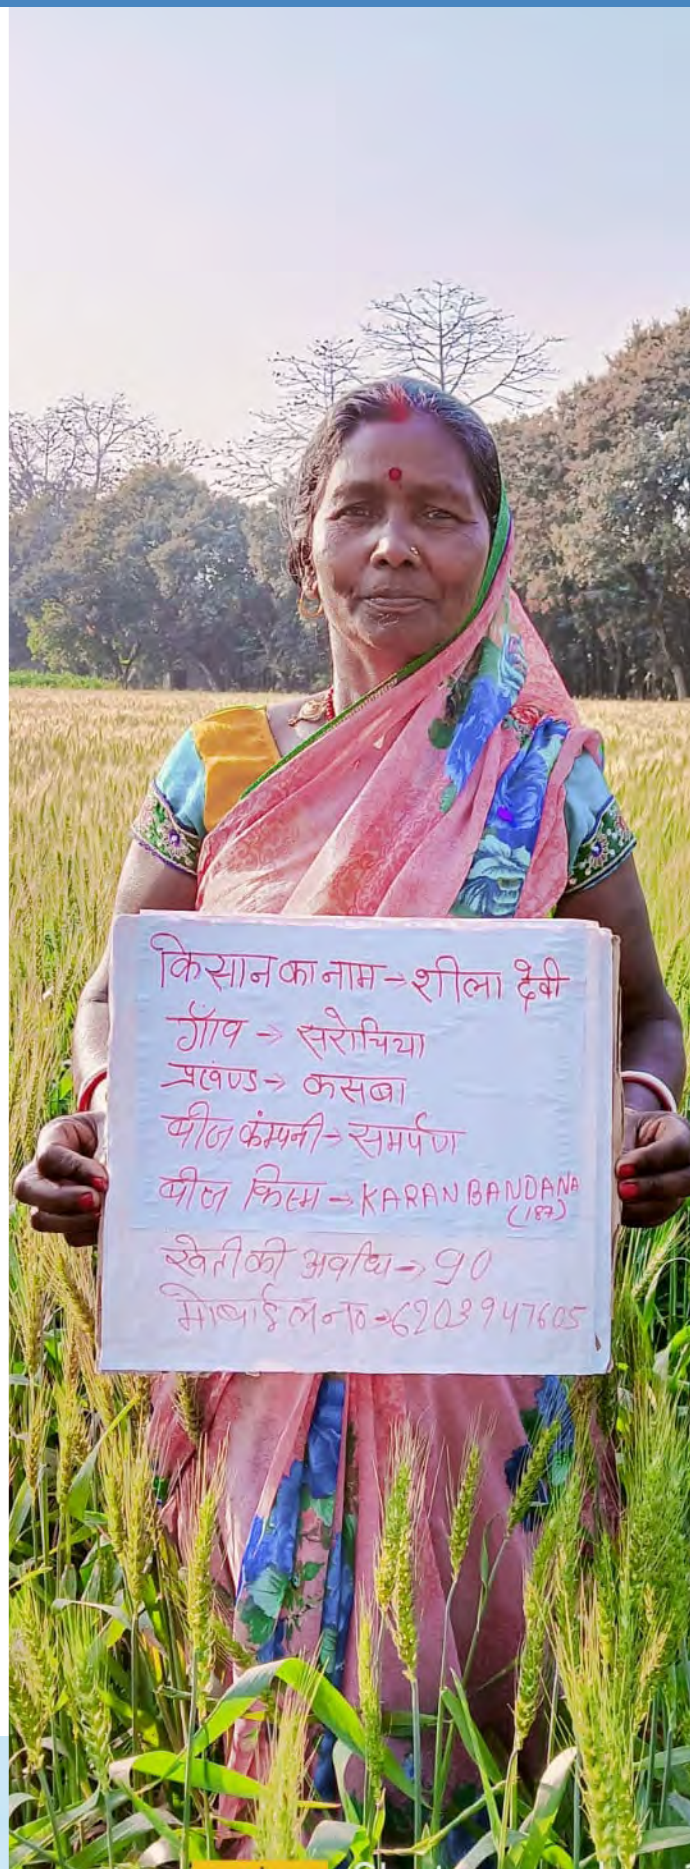 किसान का नाम → शीला देवी
गाँव → सरोचिया
प्रखण्ड → कसबा
बीज कंम्पनी → समर्पण
बीज किस्म → KARAN BANDANA
(187)
खेती की अवधि → 90
मोबाईल न० → 6203947605